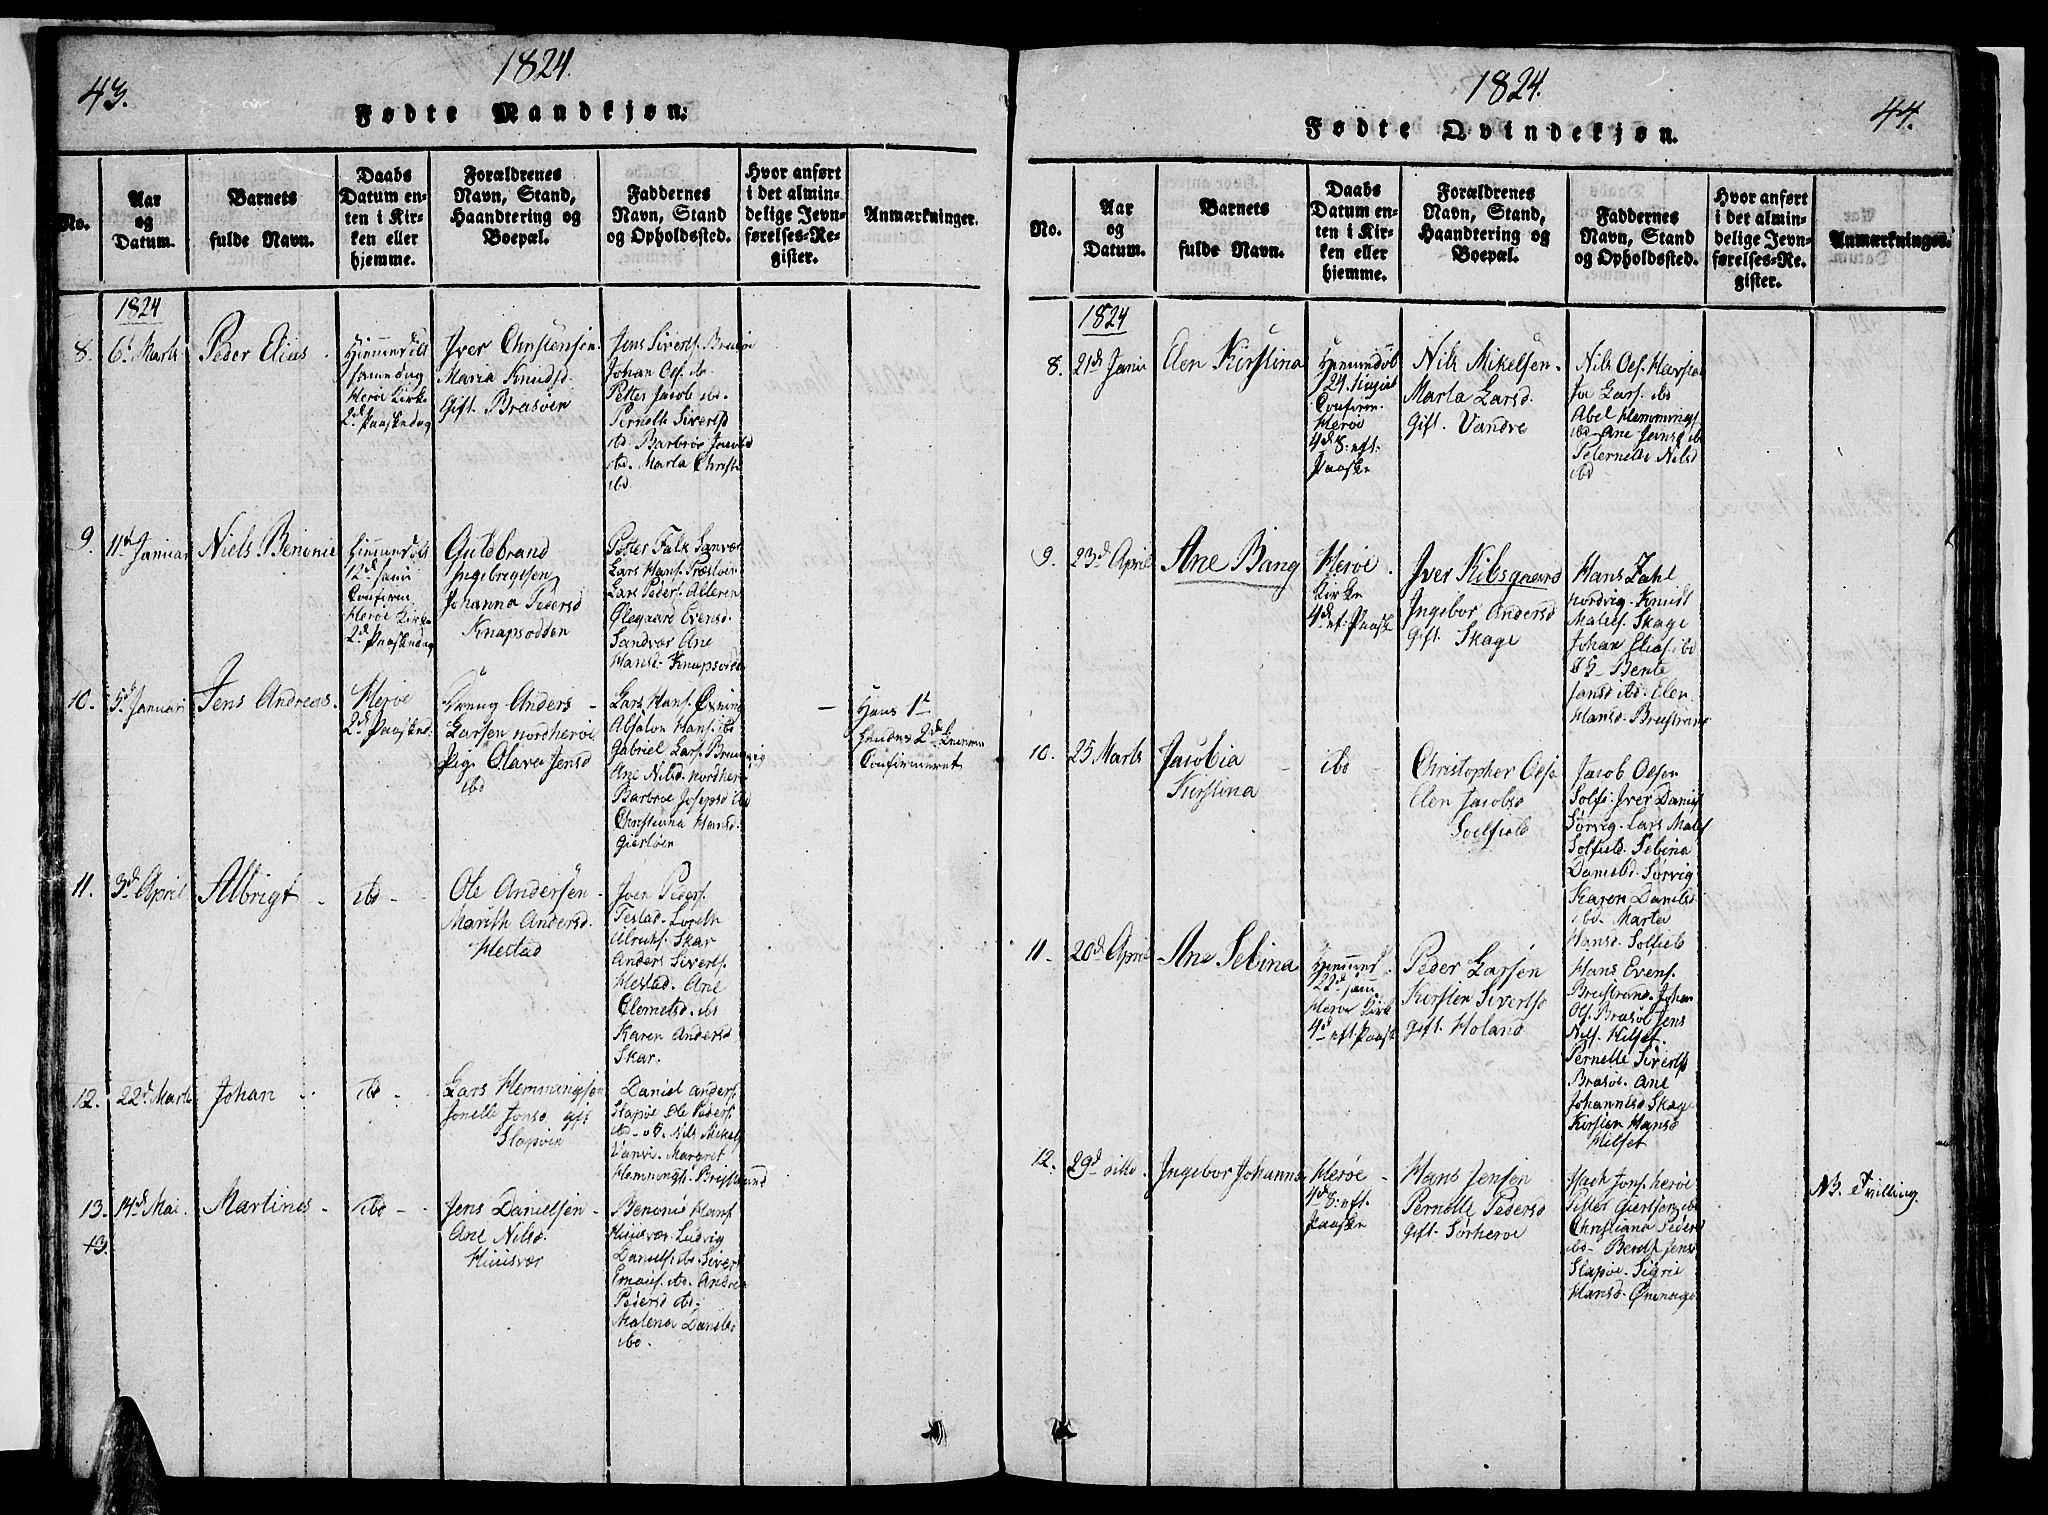 43.
1824.
Fødte Mandkjøn.
No.
Aar
og
Datum.
Barnets
fulde Navn.
Daabs
Datum en-
ten i Kir-
ken eller
hjemme.
Forældrenes
Navn, Stand,
Haandtering og
Boepæl.
Faddernes
Navn, Stand
og Opholdssted.
Hvor anført
i det almin-
delige Jevn-
førelses-Re-
gister.
Anmærkninger.
1824
8.
6. Marts
Peder Elius
samedag
Herøe Kirke
2d Paaskedag
Iver Christensen
Maria Knudsd
Gift. Brasøen
Jens Sivertf. Brasøe
Johan Olf. ibd
Petter Jacobf. ibd.
Perneth Sivertsd
ibd. Barbroe Jacobsd
ibd. Marta Christ
ibd
9.
11te Januar
Niels Benonie
12d Janr
Confirm
Herøe Kirke
2d Paaskedag
Guldbrand
Ingebregtsen
Johanna Pedersd
Knapsodden
Petter Falk Sanvær
Lars Hansf. Træløen
Lars Pedersf. Alteren
Ølegaard Evensd.
Sandvær Ane
Hansd. Knapsodde
10.
5d Januari
Jens Andreas.
Herøe
2d Paasked.
Dreng Anders
Larsen nordherøe
Pige Olava Jensd
ibd
Lars Hansf. Øxning
Absalon Hansf. ibd
Gabriel Larsf. Brunsvig
Ane Nilsd. nordher
Barbroe Josepsd ibd
Christianna Hansd.
Giestøen
Hans 1te
hendes 2de Leierm
Confirmeret
11.
3d April
Albrigt
ibd
Ole Andersen
Marith Andersd
Hestad
Iver Pedersf.
Testad. Loreth
Ulriksf. Skar
Anders Sivertf.
Hestad. Ane
Clemetsd. ibd
Karen Andersd
Skar.
12.
22d Marts
Johan
ibd
Lars Hemmingsen
Jonette Jonsd gift
Slapøen
Daniel Andersf.
Slapøe Ole Pedersf.
ibd Nils Mikelf
Vanvi. Margret
Hemmingsd. Breistrand
13.
14d Mai
Martines
ibd
Jens Danielsen
Ane Nilsd.
Huusvær
Benonie Hansf
Huusvær Ludvig
Danielsf. ibd. Sivert
ibd. Andrea
Pedersd ibd.
Malena Danielsd
ibd.
13.
1824.
44.
Fødte Qvindekjøn.
No.
Aar
og
Datum.
Barnets
fulde Navn.
Daabs
Datum en-
ten i Kir-
ken eller
hjemme.
Forældrenes
Navn, Stand,
Haandtering og
Boepæl.
Faddernes
Navn, Stand
og Opholdssted.
Hvor anført
i det almin-
delige Jevn-
førelses-Re-
gister.
Anmærkninger.
1824
8.
21d Janu
Elen Kirstina
Confirm.
Herøe
4d S. eft.
Paaske
Nils Mikelsen
Marta Larsd.
Gift. Vandve
Nils Olf.
Larsf. ibd
Abel Hemmingsf
ibd. Ane Jensd ib
Peternelle Nilsd
ibd
9.
23d April
Ane Bang
Herøe
Kirke
4d eft. Paaske
Iver Kilsgaard
Ingebor Andersd
Gift. Skage
Hans Zahl
Nordvig. Knudt
Matisf. Skage
Johan Eliasf. ibd
Bente
Jansd ibd. Elen
Hansd. Breistrand
10.
25 Marts
Jacobia
Kirstina
ibd
Christopher Olsen
Elen Jacobsd
Solfield
Jacob Olsen
Solfi. Iver Danielsf
Sørvig. Lars Matsf
Solfield. Sebina
Danielsd. Sørvig
Karen Danielsd
ibd. Marte
Hansd. Solfield
11.
20d April
Ane Sebina
22d Janr
Herøe Kirk
4d eft Paask
Peder Larsen
Kirsten Sivertsd
gift. Holand
Hans Evensf.
Breistrand. Johan
Olf. Brasøe Jens
Nilsf. Hilset.
Pernelle Sivertsd
Brasøe. Ane
Johannesd Skage
Kirsten Hansd
Hilset
12.
29d ditto.
Ingebor Johanna
Herøe
4d S. eft.
Paaske
Hans Jensen
Pernelle Pedersd
Gift. Sørherøe
Isach Jonsf. herøe
Petter Giertsen ibd
Christiana Pedersd
ibd. Bereth Jensd
Slapøe. Sigrie
Hansd.
NB. Tvilling.